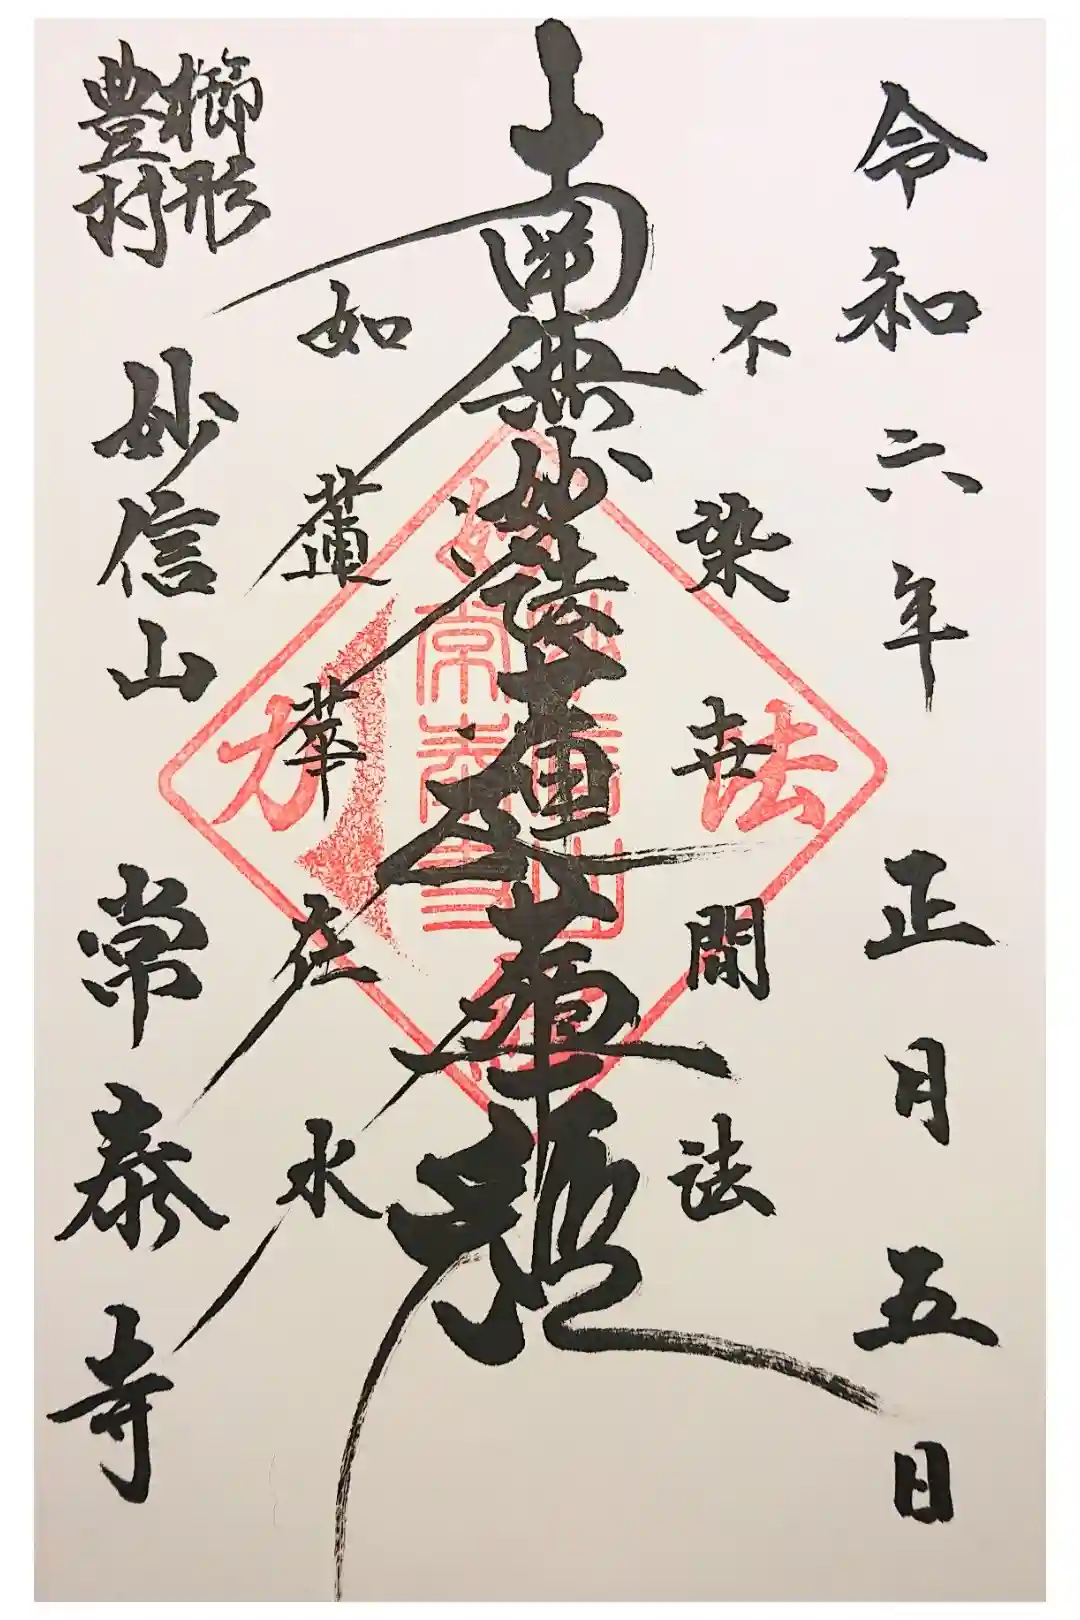 令和六年正月五日
不染世間法
南無妙法蓮華経
如蓮華在水
櫛形
豊村
妙信山
常泰寺
妙法
方
妙信山
常泰寺